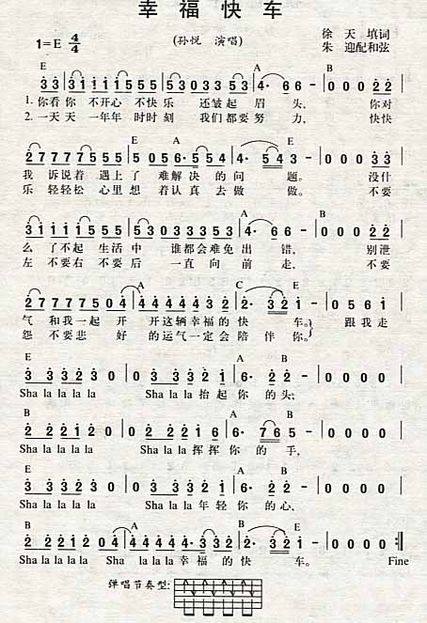 幸福快车
1=E 4/4 (孙悦 演唱) 徐天填词
朱迎配和弦
E A B
3 3 | 3 1 1 1 1 5 5 5 5 5 3 0 3 3 5 3 | 4· 6 6 - | 0 0 0 2 2 |
1.你看你 不开心 不快乐 还皱起 眉头, 你对
2.一天天 一年年 时时刻 我们都要努 力, 快快
E A
2 7 7 7 7 7 5 5 5 | 5 0 5 6·5 5 4 | 4· 5 4 3 - | 0 0 0 3 3 |
我 诉说着 遇上了 难解决 的问 题。 没什
乐 轻轻松 心里想 着认真 去做 做。 不要
A B
3 1 1 1 1 5 5 5 | 5 3 0 3 3 3 5 3 | 4· 6 6 - | 0 0 0 2 2 |
么 了不起 生活中 谁都会难免 出 错, 别泄
左 不要右 不要后 一直向 前 走, 不要
E A C E
2 7 7 7 7 5 0 4 | 4 4 4 4 4 3 2 | 2· 3 2 1 - | 0 5 6 1 |
气 和我一起 开 开这辆幸福的 快 车。} 跟我走
怨 不要悲 好 的运气一定会 陪 伴你。
E A B
3 3 3 2 3 0 | 0 3 3 3 2 1 | 6· 2 2 - | 0 0 0 0 |
Sha la la la la Sha la la 抬起 你 的头;
B A B
2 2 2 1 2 0 | 0 2 2 2 1 | 6· 7 6 5 - | 0 0 0 0 |
Sha la la la la Sha la la 挥挥 你 的 手,
E A B
3 3 3 2 3 0 | 0 3 3 3 2 1 | 6· 2 2 - | 0 0 0 0 |
Sha la la la la Sha la la 年轻 你 的心,
B A B E
2 2 2 1 2 0 4 | 4 4 4 4 4·3 2 | 2· 3 2 1 - | 0 0 0 0 :‖
Sha la la la la Sha la la la 幸福 的 快 车。 Fine
弹唱节奏型: